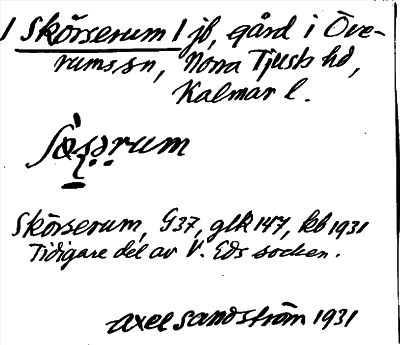 / Skörserum / jb, gård i Öve-
rums sn, Norra Tjusts hd,
Kalmar l.
Skörserum, G37, glk 147, kb 1931
Tidigare del av V. Eds socken.
Axel Sandström 1931